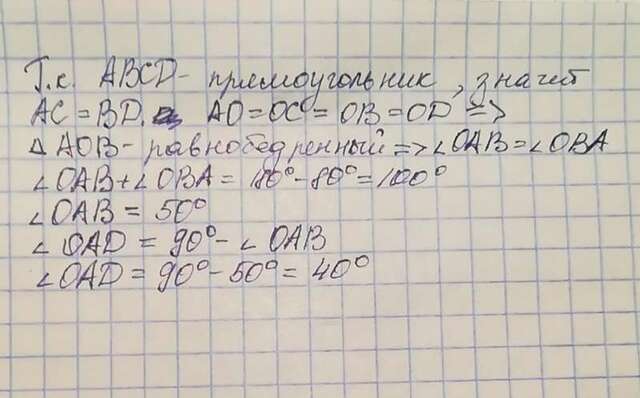 Т.к. ABCD- прямоугольник, значит
AC = BD. AO=OC=OB=OD =>
△ AOB- равнобедренный => ∠OAB=∠OBA
∠OAB+∠OBA = 180°-80°=100°
∠OAB = 50°
∠OAD = 90°-∠OAB
∠OAD = 90°-50°= 40°